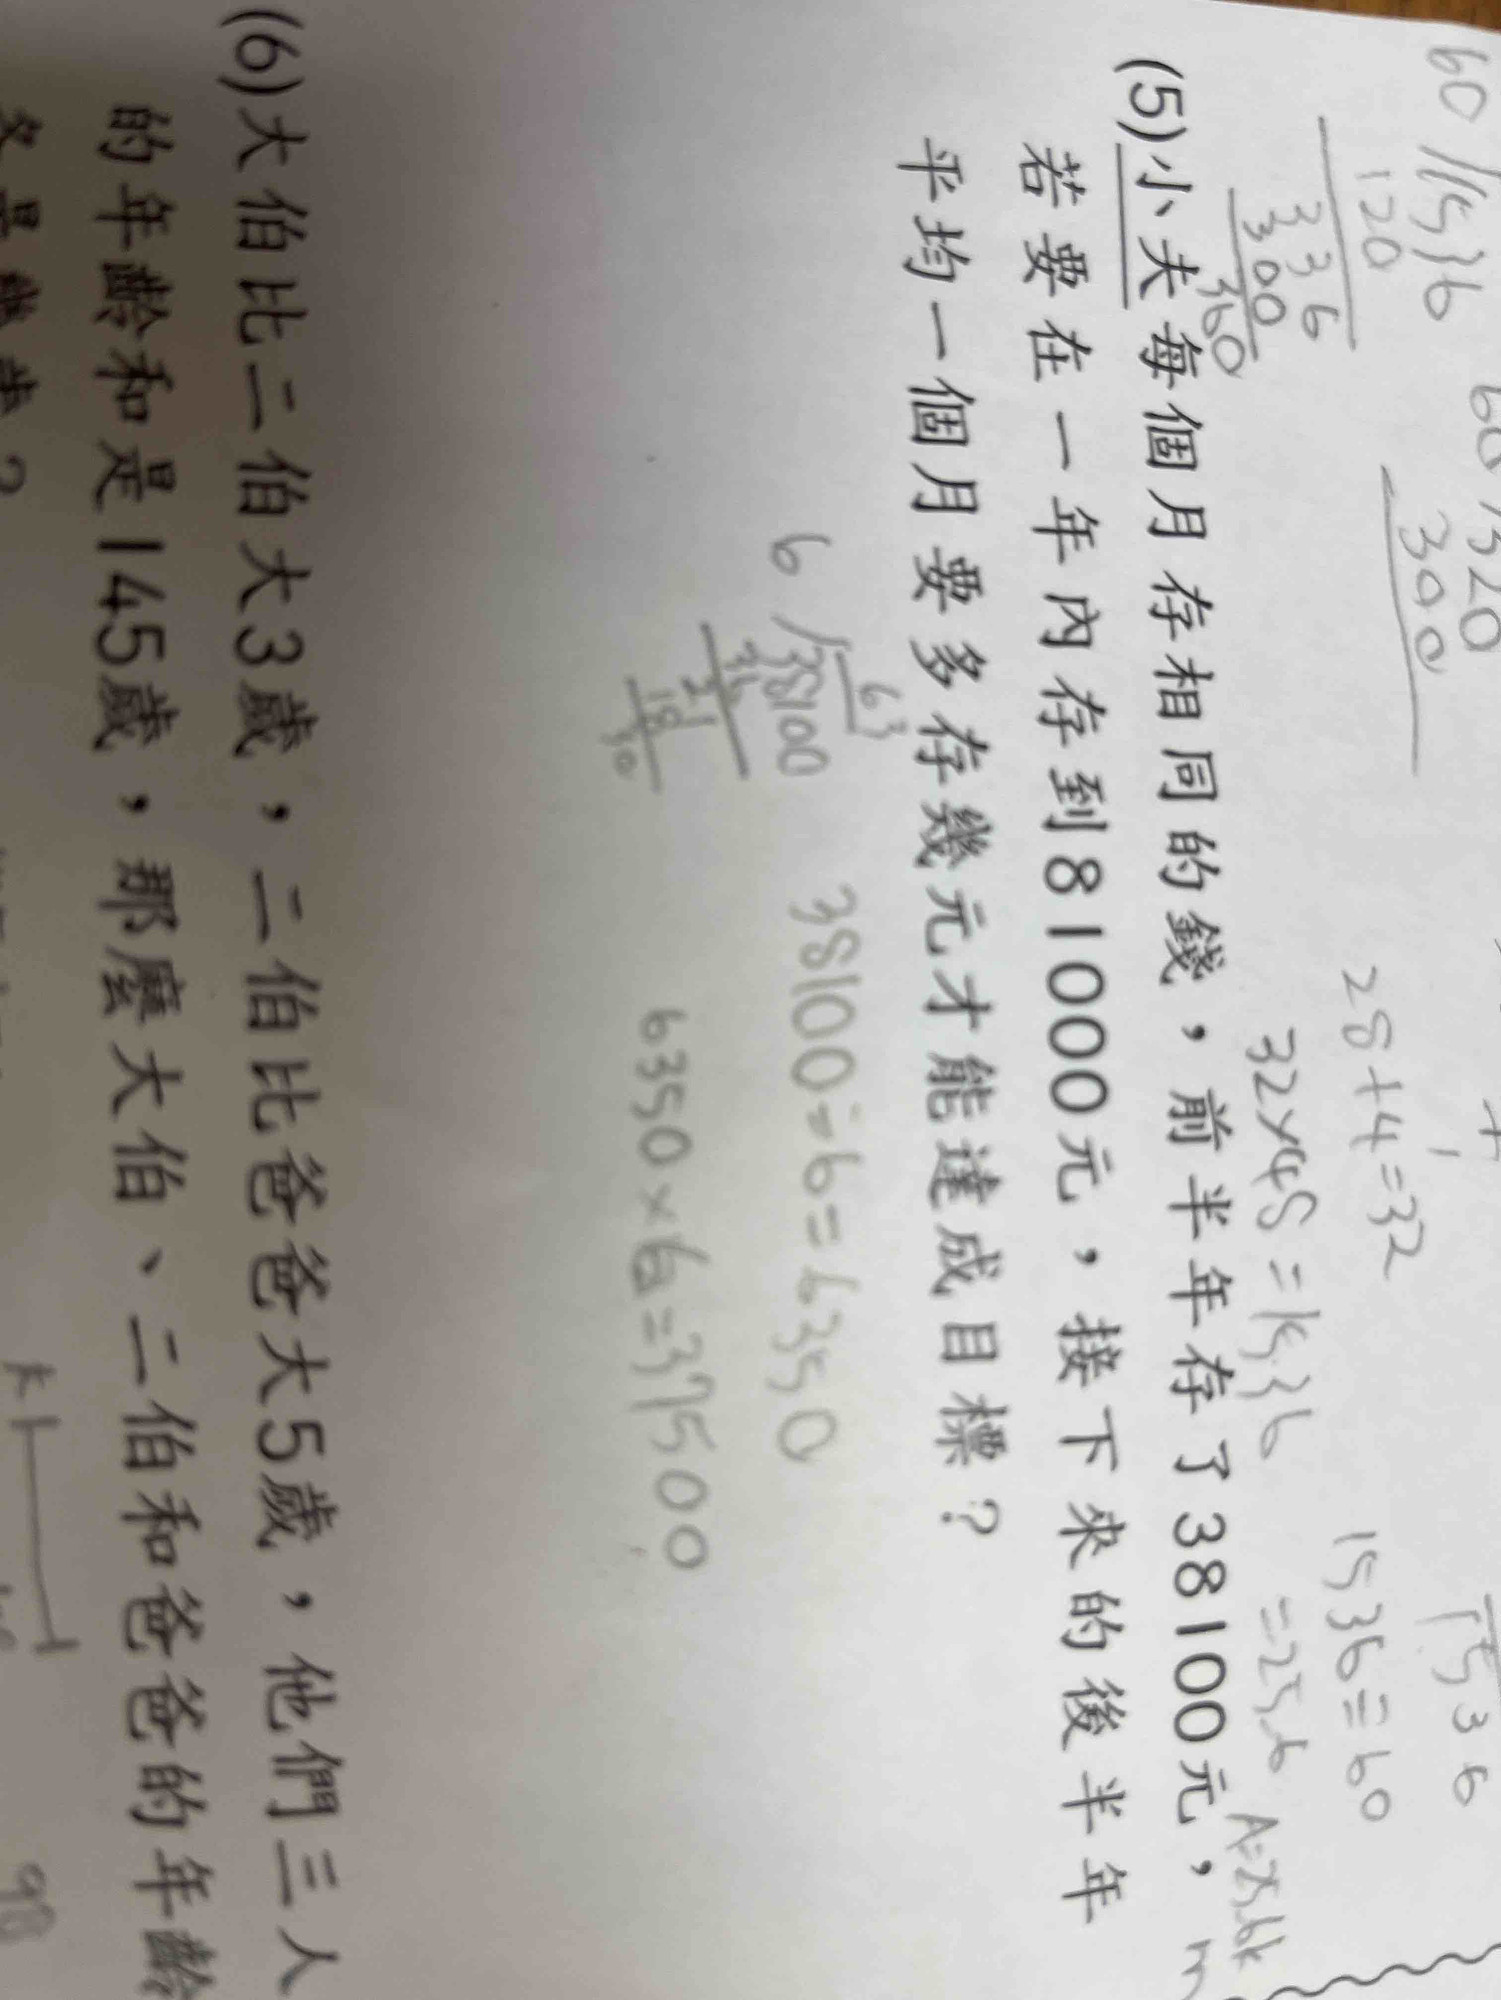 60 1536
120
336
300
360
60 1320
300
28+4=32
32×48=1536
1536
1536÷60
=25.6
(5)小夫每個月存相同的錢，前半年存了38100元，
若要在一年內存到81000元，接下來的後半年
平均一個月要多存幾元才能達成目標？
63
6 38100
36
21
18
30
38100÷6=6350
6350×6=37500
(6)大伯比二伯大3歲，二伯比爸爸大5歲，他們三人
的年齡和是145歲，那麼大伯、二伯和爸爸的年齡